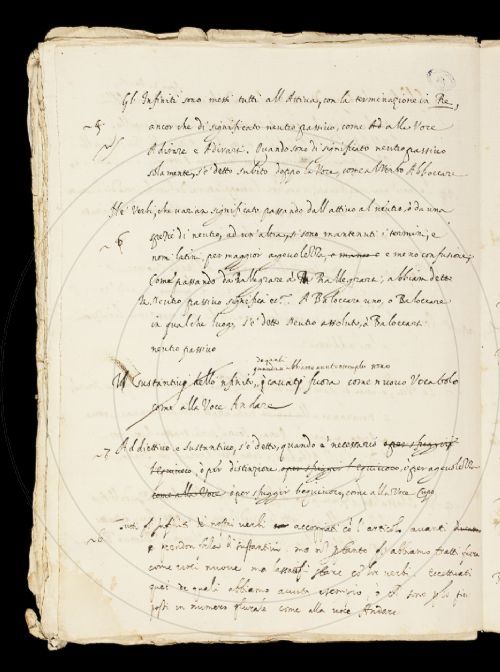 Gl' Infiniti sono messi tutti all' Attiva, con la terminazione in Re,
~5 ancor che di significato neutro passivo, come Ad alle Voce
Adirare e Adirarsi. Quando sono di significato neutro passivo
solamente, s'è detto subito doppo la Voce, come al Verbo Abboccare
Ne' Verbi, che varian significato passando dall' attivo al neutro, o da una
~6 spezie di neutro, ad un' altra, si sono mantenuti i termini, e
nomi latini per maggior agevolezza, e meno confusione,
Come passando da Rallegrare a Rallegrarsi, abbiam detto
In Neutro passivo significa ec. A Baloccare uno, o Baloccare
in qualche luogo, s'è detto Neutro assoluto, a Baloccarsi
neutro passivo
de quali
Il Sustantivo dello 'nfinito, cavati fuora come nuovo Vocabolo
come alla Voce Andare
~7 Addiettivo e Sustantivo, s'è detto, quando è necessario o per sfuggire
l'equivoco, o per distinzione o per sfuggire l'equivoco, o per agevolezza
come alla Voce o per sfuggir l'equivoco, come alla Voce Cupo
~8 Tutti gl' infiniti de nostri verbi accoppiati co l' articolo avanti
prendon forza di sustantivi, ma non pertanto gl' abbiamo tratti fuora
come voci nuove ma lasciati stare co lor verbi. Eccettuati
quei de quali abbiamo avuto esempio, o si sono più
posti in numero plurale come alla voce Andare